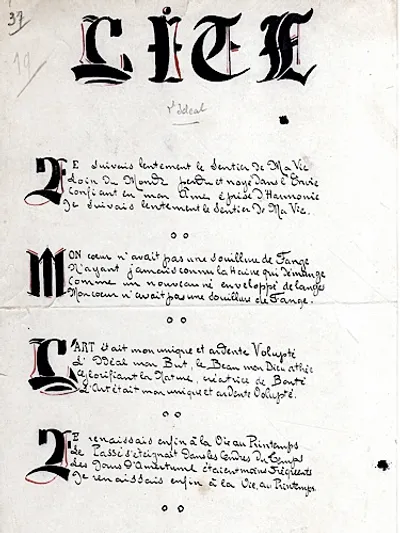 37
19
LITL
l'Ideal
JE suivais lentement le Sentier de Ma Vie
Loin du Monde perdu et noyé dans l'Envie
Confiant en mon Ame éprise d'Harmonie
Je suivais lentement le Sentier de Ma Vie.
MON cœur n'avait pas une souillure de Fange
N'ayant jamais connu la Haine qui démange
Comme un nouveau né enveloppé de langes
Mon cœur n'avait pas une souillure de Fange.
L'ART était mon unique et ardente Volupté
L'Idéal mon But, le Beau mon Dieu athée
glorifiant la Nature, créatrice de Bonté
L'Art était mon unique et ardente Volupté.
JE renaissais enfin à la Vie au Printemps
Le Passé s'éteignait dans les Cendres du Temps
Les Jours d'Amertume étaient moins fréquents
Je renaissais enfin à la Vie, au Printemps.